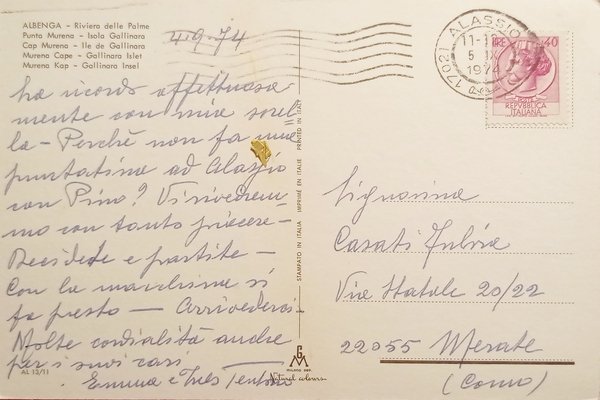 ALBENGA - Riviera delle Palme
Punta Murena - Isola Gallinara
Cap Murena - Ile de Gallinara
Murena Cape - Gallinara Islet
Murena Kap - Gallinara Insel
4-9-74
La ricordo affettuosa-
mente con mia sorel-
la - Perchè non fa una
puntatina ad Alassio
con Pino? Vi rivedrem-
mo con tanto piacere -
Decidete e partite -
Con la macchina si
fa presto - Arrivederci -
Molte cordialità anche
per i suoi cari
Emma e Ines
AL 13/11
STAMPATO IN ITALIA IMPRIMÉ EN ITALIE PRINTED IN ITALY
MILANO DEP.
Natural colours
17021 ALASSIO
5 IX
1974
LIRE 40
REPVBBLICA
ITALIANA
Signorina
Casati Fulvia
Via Statale 20/22
22055 Merate
(Como)